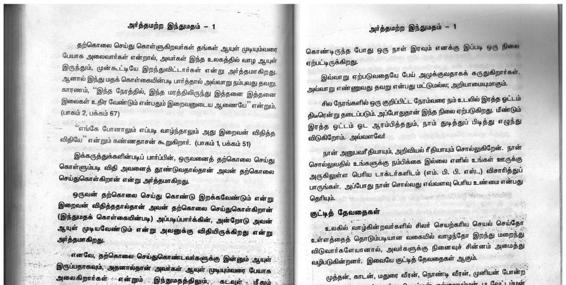 அர்த்தமற்ற இந்துமதம் – 1
தற்கொலை செய்து கொள்ளுகிறவர்கள் தங்கள் ஆயுள் முடியும்வரை
பேயாக அலைவார்கள் என்றால், அவர்கள் இந்த உலகத்தில் வாழ ஆயுள்
இருந்தும், முன்கூட்டியே இறந்துவிட்டார்கள் என்று அர்த்தமாகிறது.
ஆனால் இந்து மதக் கொள்கையின்படி பார்த்தால் அவ்வாறு நம்புவது தவறு.
காரணம், "இந்த நேரத்தில், இந்த மரத்திலிருந்து இத்தனை இத்தனை
இலைகள் உதிர வேண்டும் என்பதும் இறைவனுடைய ஆணையே" என்றும்.
(பாகம் 2, பக்கம் 67)
"எங்கே போனாலும் எப்படி வாழ்ந்தாலும் அது இறைவன் விதித்த
விதியே" என்றும் கண்ணதாசன் கூறுகிறார். (பாகம் 1, பக்கம் 51)
இக்கருத்துக்களின்படிப் பார்ப்பின், ஒருவனைத் தற்கொலை செய்து
கொள்ளும்படி விதி அவனைத் தூண்டுவதால்தான் அவன் தற்கொலை
செய்துகொள்கிறான் என்று அர்த்தமாகிறது.
ஒருவன் தற்கொலை செய்து கொண்டு இறக்கவேண்டும் என்று
இறைவன் விதித்ததால்தான் அவன் தற்கொலை செய்துகொள்கிறான்
(இந்துமதக் கொள்கையின்படி) அப்படிப்பார்க்கின், அன்றோடு அவன்
ஆயுள் முடியவேண்டும் என்று அவனுக்கு விதியிருக்கிறது என்று
அர்த்தமாகிறது.
எனவே, தற்கொலை செய்துகொண்டவர்களுக்கு இன்னும் ஆயுள்
இருப்பதாகவும், அதனால்தான் அவர்கள் ஆயுள் முடியும்வரை பேயாக
அலைகிறார்கள் என்றும் இந்துமதத்திலும், கடவுள் மீதும்
அர்த்தமற்ற இந்துமதம் – 1
கொண்டிருந்த போது ஒரு நாள் இரவும் எனக்கு இப்படி ஒரு நிலை
ஏற்பட்டிருக்கிறது.
இவ்வாறு ஏற்படுவதையே பேய் அமுக்குவதாகக் கருதுகிறார்கள்.
அவ்வாறு எண்ணுவது தவறு என்பது மட்டுமல்ல; அறியாமையுமாகும்.
சில நேரங்களில் ஒரு குறிப்பிட்ட நேரம்வரை நம் உடலில் இரத்த ஓட்டம்
திடீரென்று தடைப்படும். அப்போதுதான் இந்த நிலை ஏற்படுகிறது. மீண்டும்
இரத்த ஓட்டம் ஓட ஆரம்பித்ததும், நாம் துடித்துப் பிடித்து எழுந்து
விடுகிறோம். அவ்வளவே!
நான் அனுபவரீதியாகவும், அறிவியல் ரீதியாயும் சொல்லுகிறேன். நான்
சொல்லுவதில் உங்களுக்கு நம்பிக்கை இல்லை எனில் உங்கள் ஊருக்கு
அருகிலுள்ள பெரிய டாக்டர்களிடம் (எம். பி. பி. எஸ்.) விசாரித்துப்
பாருங்கள். அப்போது நான் சொல்வது எவ்வளவு பெரிய உண்மை என்பது
தெரியும்.
குட்டித் தேவதைகள்
உலகில் வாழ்கின்றவர்களில் சிலர் செயற்கரிய செயல் செய்தோ
உள்ளத்தைத் தொடும்படியான வகையில் வாழ்ந்தோ இறந்து மறைந்து
விடுவார்களேயானால், அவர்களுக்கு நினைவுச் சின்னம் அமைத்து
வழிபடுகிறார்கள். இவையே குட்டித் தேவதைகள் ஆகும்.
முத்தன், காடன், மதுரை வீரன், நொண்டி வீரன், முனியன் போன்ற